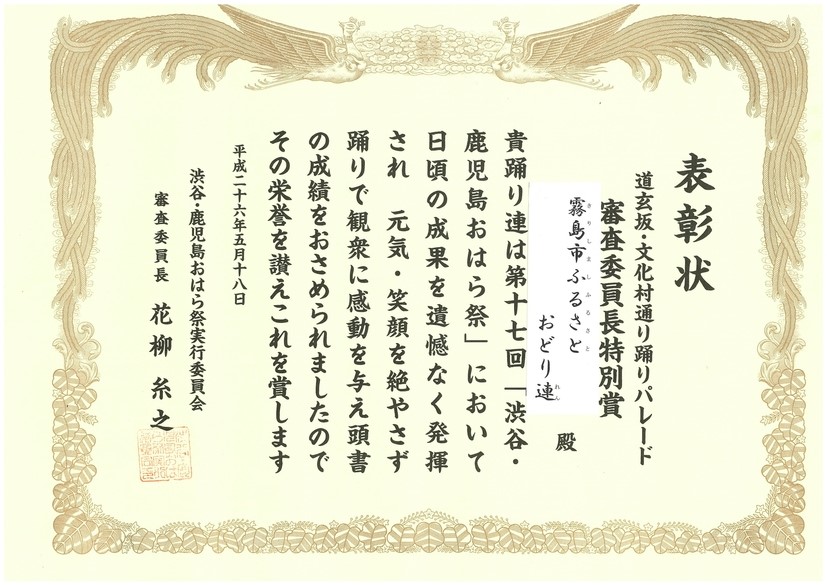 表彰状
道玄坂・文化村通り踊りパレード
審査委員長特別賞
霧島市ふるさと
きりしましふるさと
おどり連
れん
殿
貴踊り連は第十七回「渋谷・
鹿児島おはら祭」において
日頃の成果を遺憾なく発揮
され　元気・笑顔を絶やさず
踊りで観衆に感動を与え頭書
の成績をおさめられましたので
その栄誉を讃えこれを賞します
平成二十六年五月十八日
渋谷・鹿児島おはら祭実行委員会
審査委員長　花柳糸之